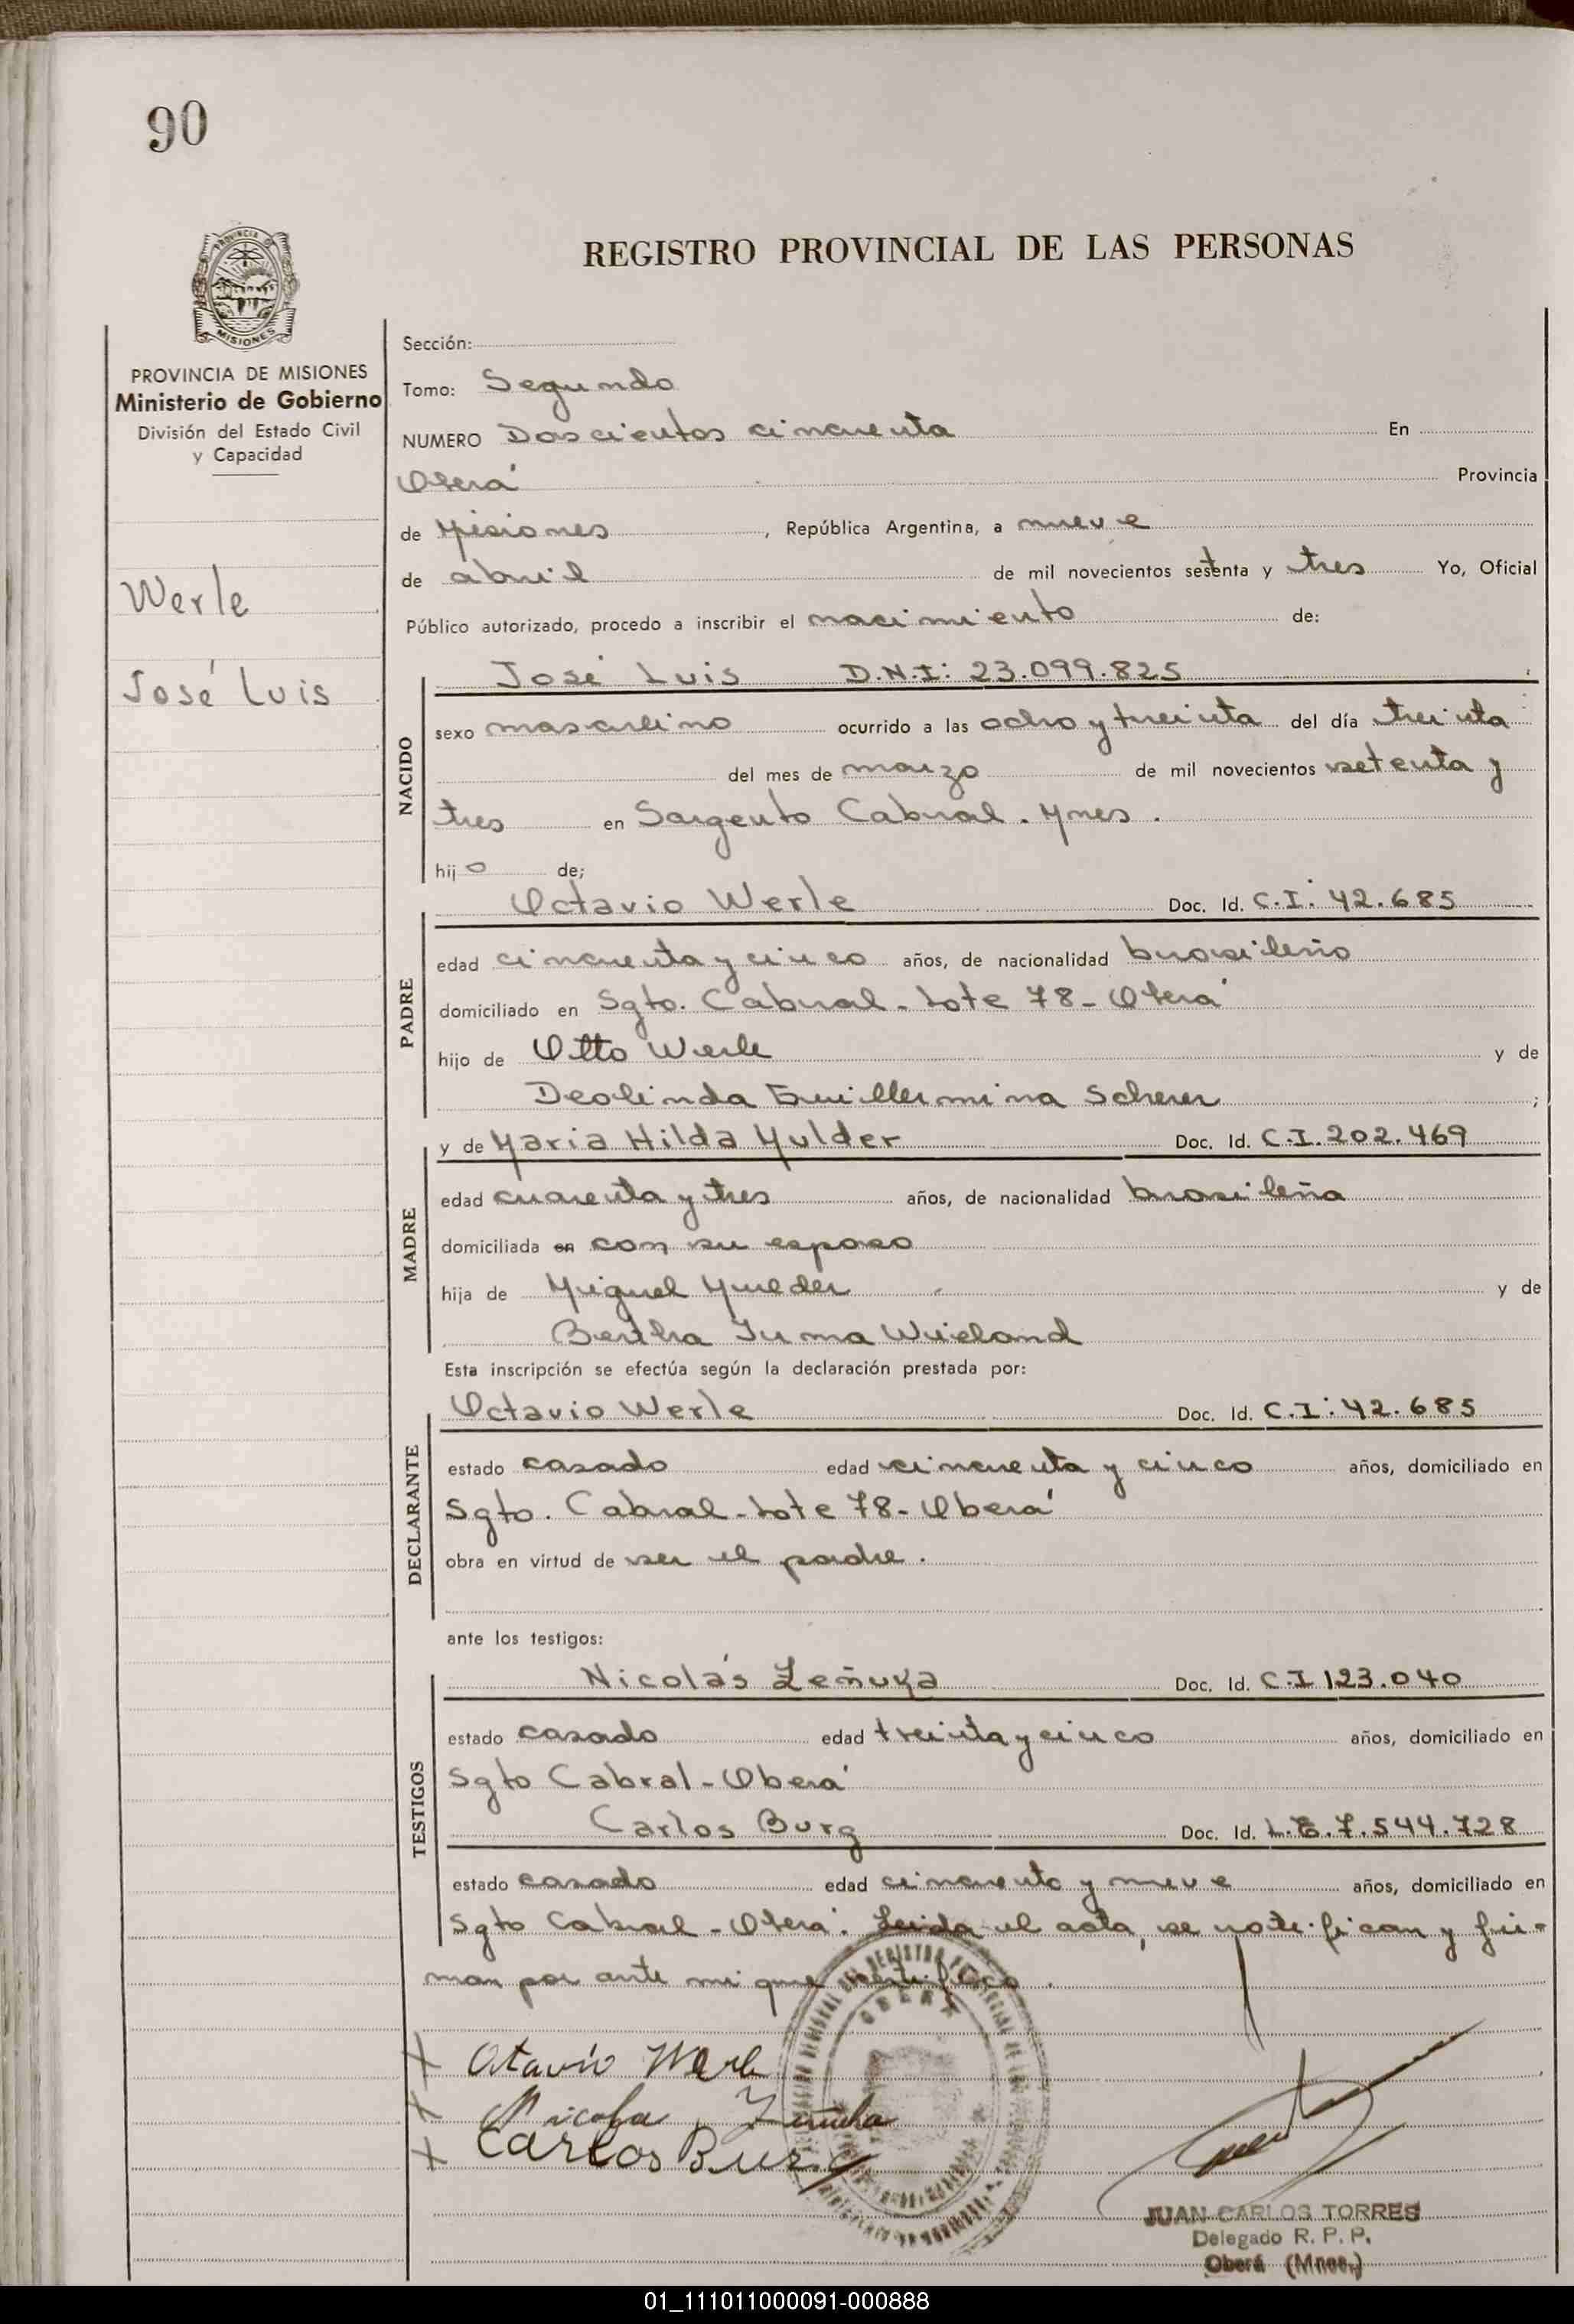 90
REGISTRO PROVINCIAL DE LAS PERSONAS
PROVINCIA DE MISIONES
Ministerio de Gobierno
División del Estado Civil
y Capacidad
Werle
José Luis
Sección:
Tomo: Segundo
NUMERO Doscientos cincuenta En
Oberá Provincia
de Misiones, República Argentina, a nueve
de abril de mil novecientos setenta y tres Yo, Oficial
Público autorizado, procedo a inscribir el nacimiento de:
NACIDO
José Luis D.N.I: 23.099.825
sexo masculino ocurrido a las ocho y treinta del día treinta
del mes de marzo de mil novecientos setenta y
tres en Sargento Cabral. Mnes.
hijo de;
PADRE
Octavio Werle Doc. Id. C.I: 42.685
edad cincuenta y cinco años, de nacionalidad brasileño
domiciliado en Sgto. Cabral - Lote 78 - Oberá
hijo de Otto Werle y de
Deolinda Guillermina Scherer ;
MADRE
y de Maria Hilda Mulder Doc. Id. C.I. 202.469
edad cuarenta y tres años, de nacionalidad brasileña
domiciliada en con su esposo
hija de Miguel y de
Bertha Wieland
Esta inscripción se efectúa según la declaración prestada por:
DECLARANTE
Octavio Werle Doc. Id. C.I: 42.685
estado casado edad cincuenta y cinco años, domiciliado en
Sgto. Cabral - Lote 78 - Oberá
obra en virtud de ser el padre.
ante los testigos:
TESTIGOS
Nicolás Zeñuka Doc. Id. C.I 123.040
estado casado edad treinta y cinco años, domiciliado en
Sgto Cabral - Oberá
Carlos Burg Doc. Id. L.E. 7.544.728
estado casado edad cincuenta y nueve años, domiciliado en
Sgto Cabral - Oberá. Leida el acta, se notifican y fir-
man por ante mi que certifico.
Otavio Werle
Carlos Burg
JUAN CARLOS TORRES
Delegado R. P. P.
Oberá (Mnes.)
01_111011000091-000888